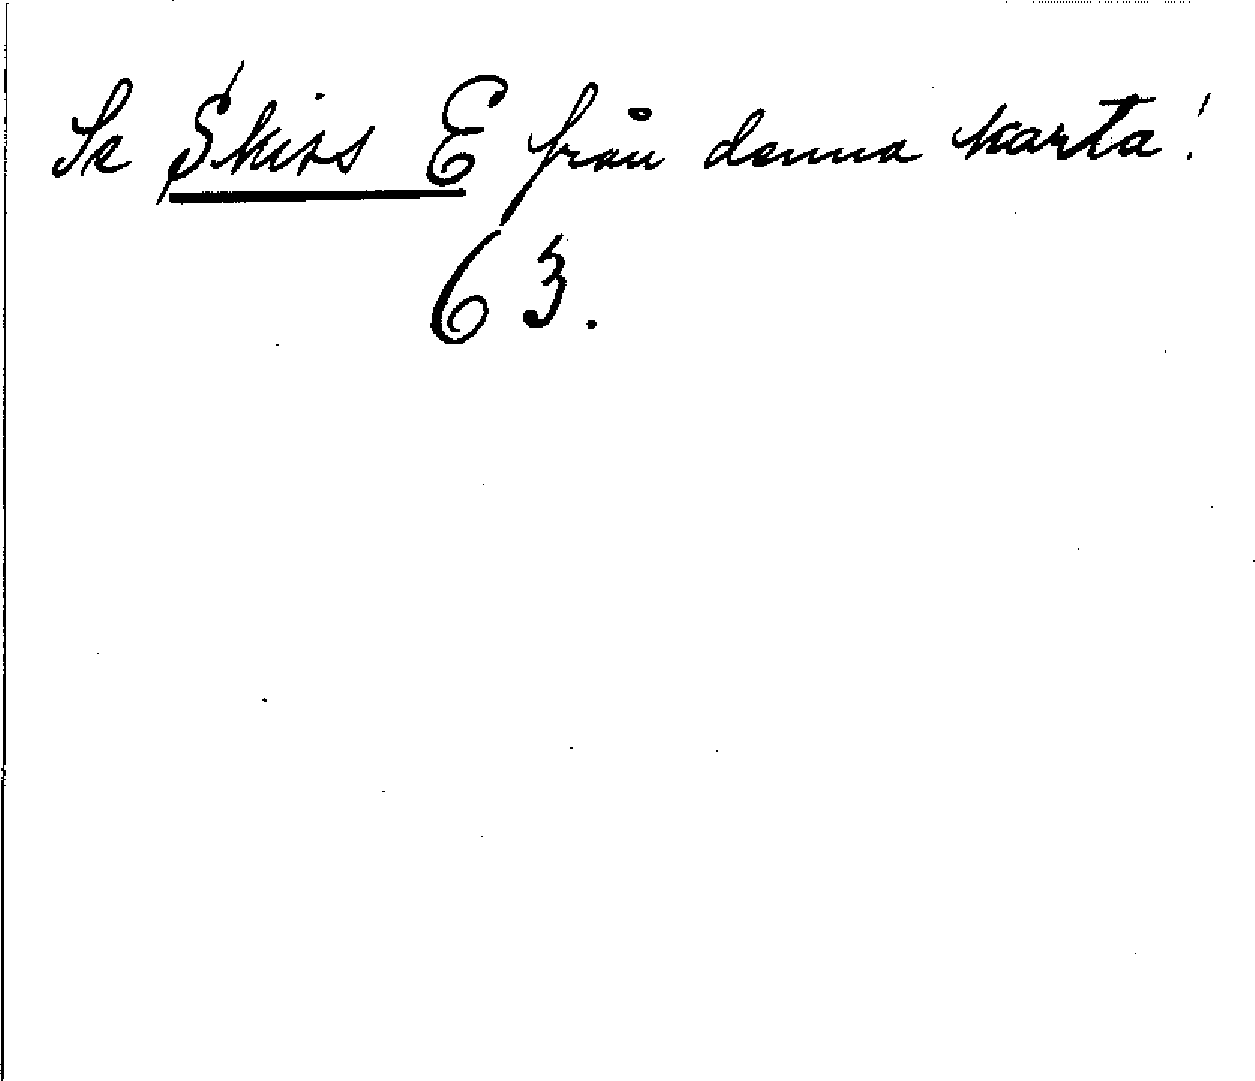 Se Skiss E från denna karta!
63.